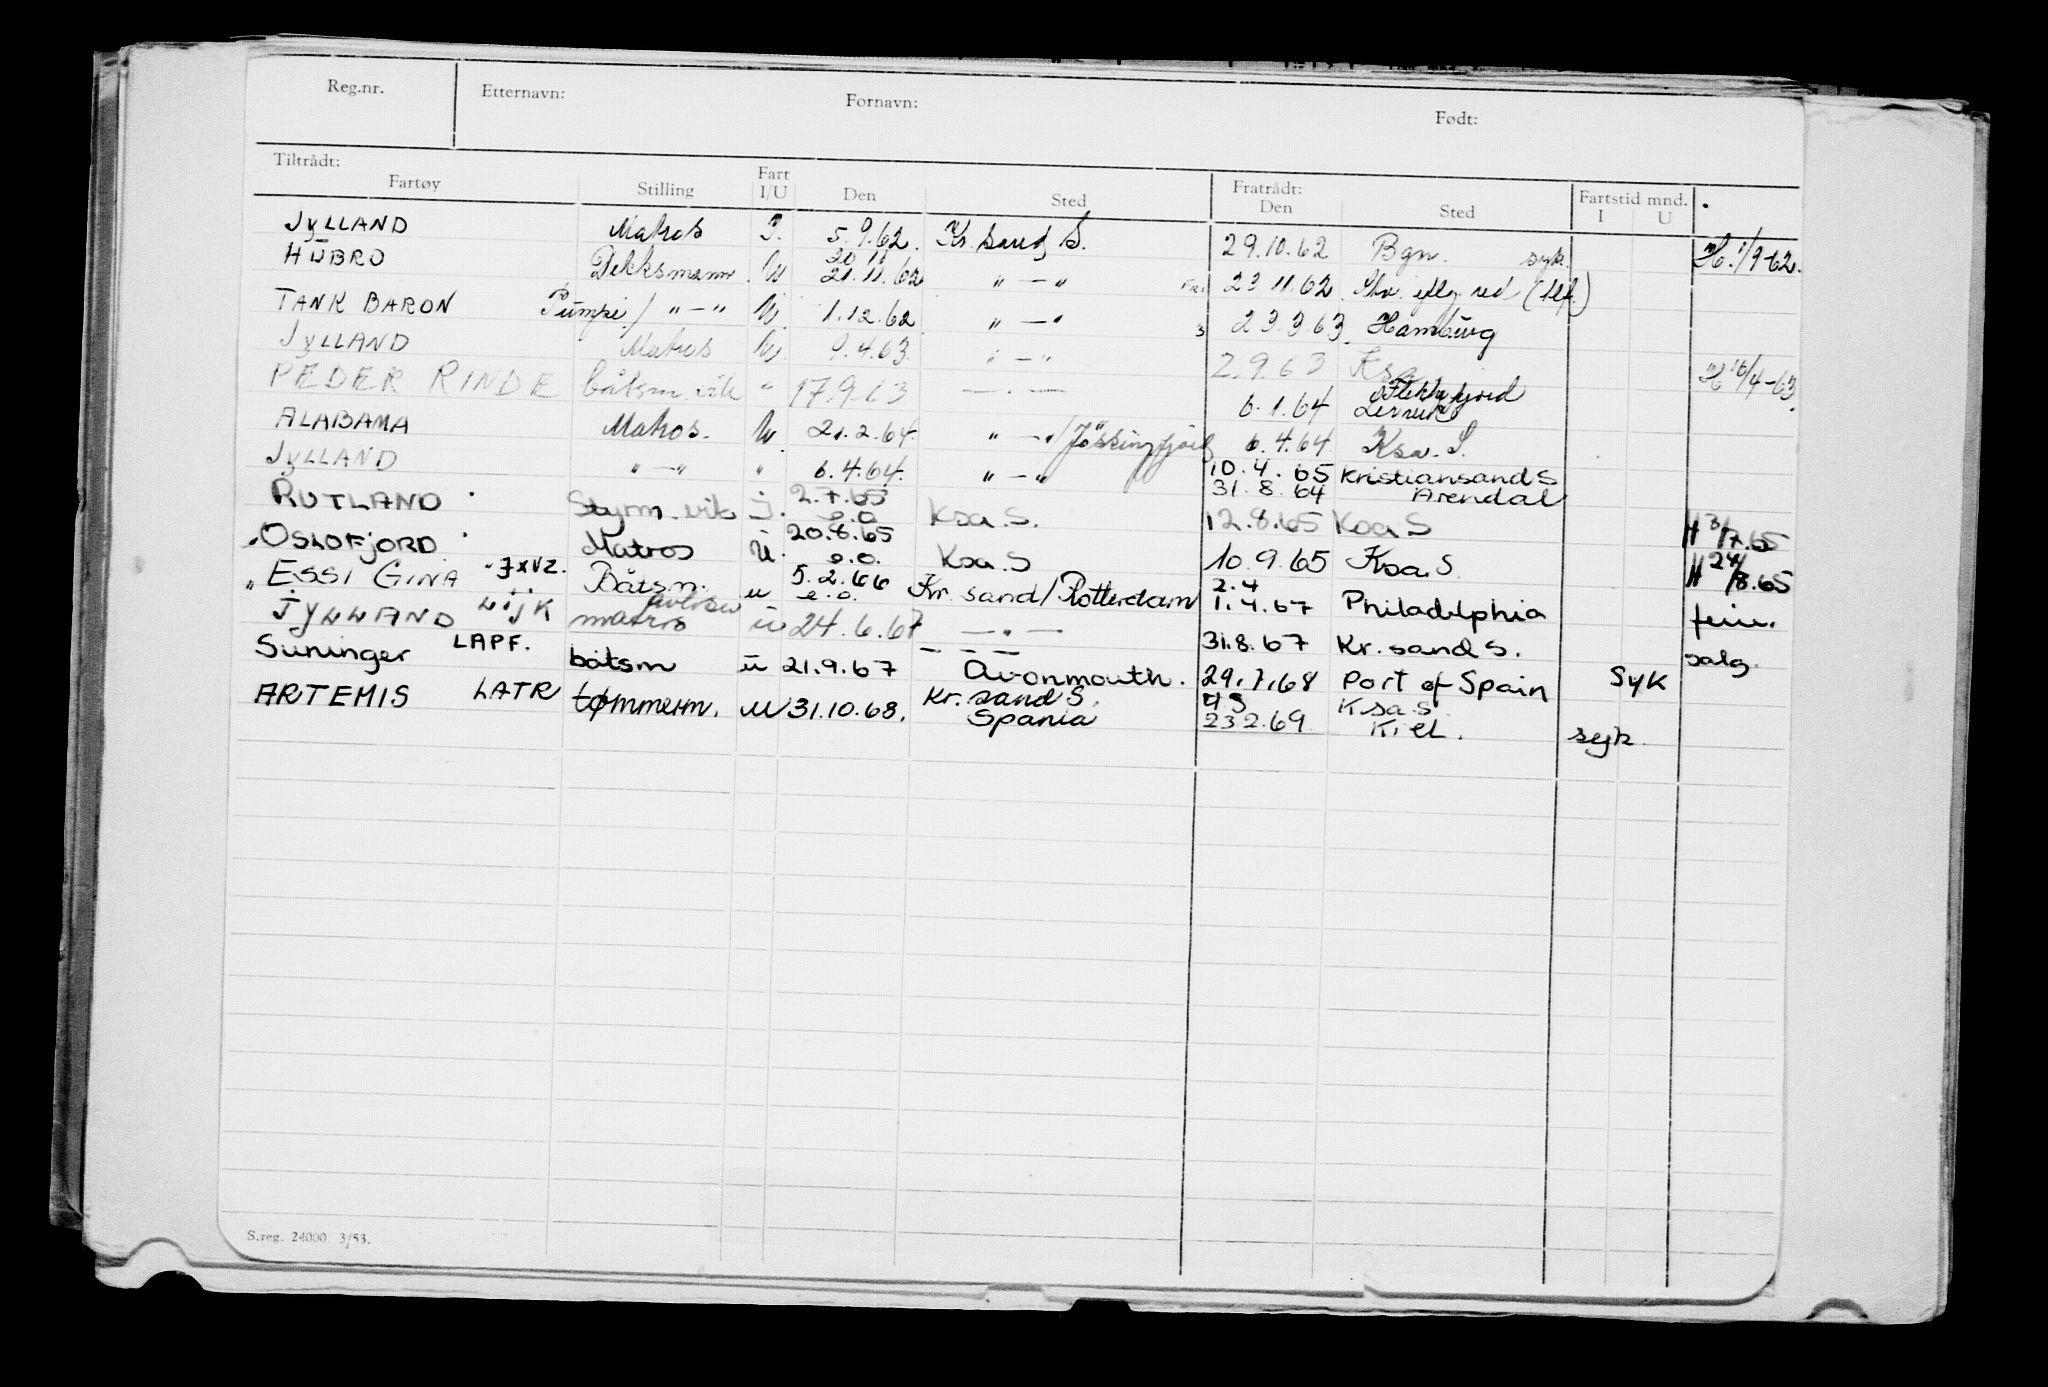 Reg.nr. Etternavn: Fornavn: Født:
Tiltrådt: Fratrådt: Fartstid mnd.
Fartøy Stilling Fart I/U Den Sted Den Sted I U
JYLLAND Matros I. 5.9.62. Kr. sand S. 29.10.62 Bgn. syk. H. 1/9-62.
HÜBRO Dekksmann U. 20 11 21.11.62 " — " 23.11.62
TANK BARON Pumpe/ " — " U. 1.12.62 " — " 23.3.63. Hamburg
JYLLAND Matros U. 9.4.63. " — " 2.9.63 Ksa. H 16/4-63.
PEDER RINDE båtsm. vik " 17.9.63 — " — 6.1.64 Flekkefjord
ALABAMA Matros. U. 21.2.64. " — "/Jøssingfjord 6.4.64 Ksa. S.
JYLLAND " — " " 6.4.64. " — " 10.4.65 Kristiansand S
31.8.64 Arendal
RUTLAND Styrm. vik I. 2.7.65 e.o. Ksa. S. 12.8.65 Ksa S H 3/7.65
OSLOFJORD Matros U. 20.8.65 e.o. Ksa. S 10.9.65 Ksa. S. H 24/8.65
" ESSI GINA JXVZ. Båtsm. u 5.2.66 e.o. Kr. sand/Rotterdam 2.4 1.4.67 Philadelphia ferie.
JYLLAND LIJK matros ü 24.6.67 — " — 31.8.67 Kr. sand S. salg.
Suninger LAPF. båtsm ü 21.9.67 — — — Avonmouth. 29.7.68 Port of Spain SYK
ARTEMIS LATR tømmerm. U 31.10.68. Kr. sand S. Spania 4 3 23 2.69 Ksa S. Kiel. syk.
S.reg. 24000. 3/53.